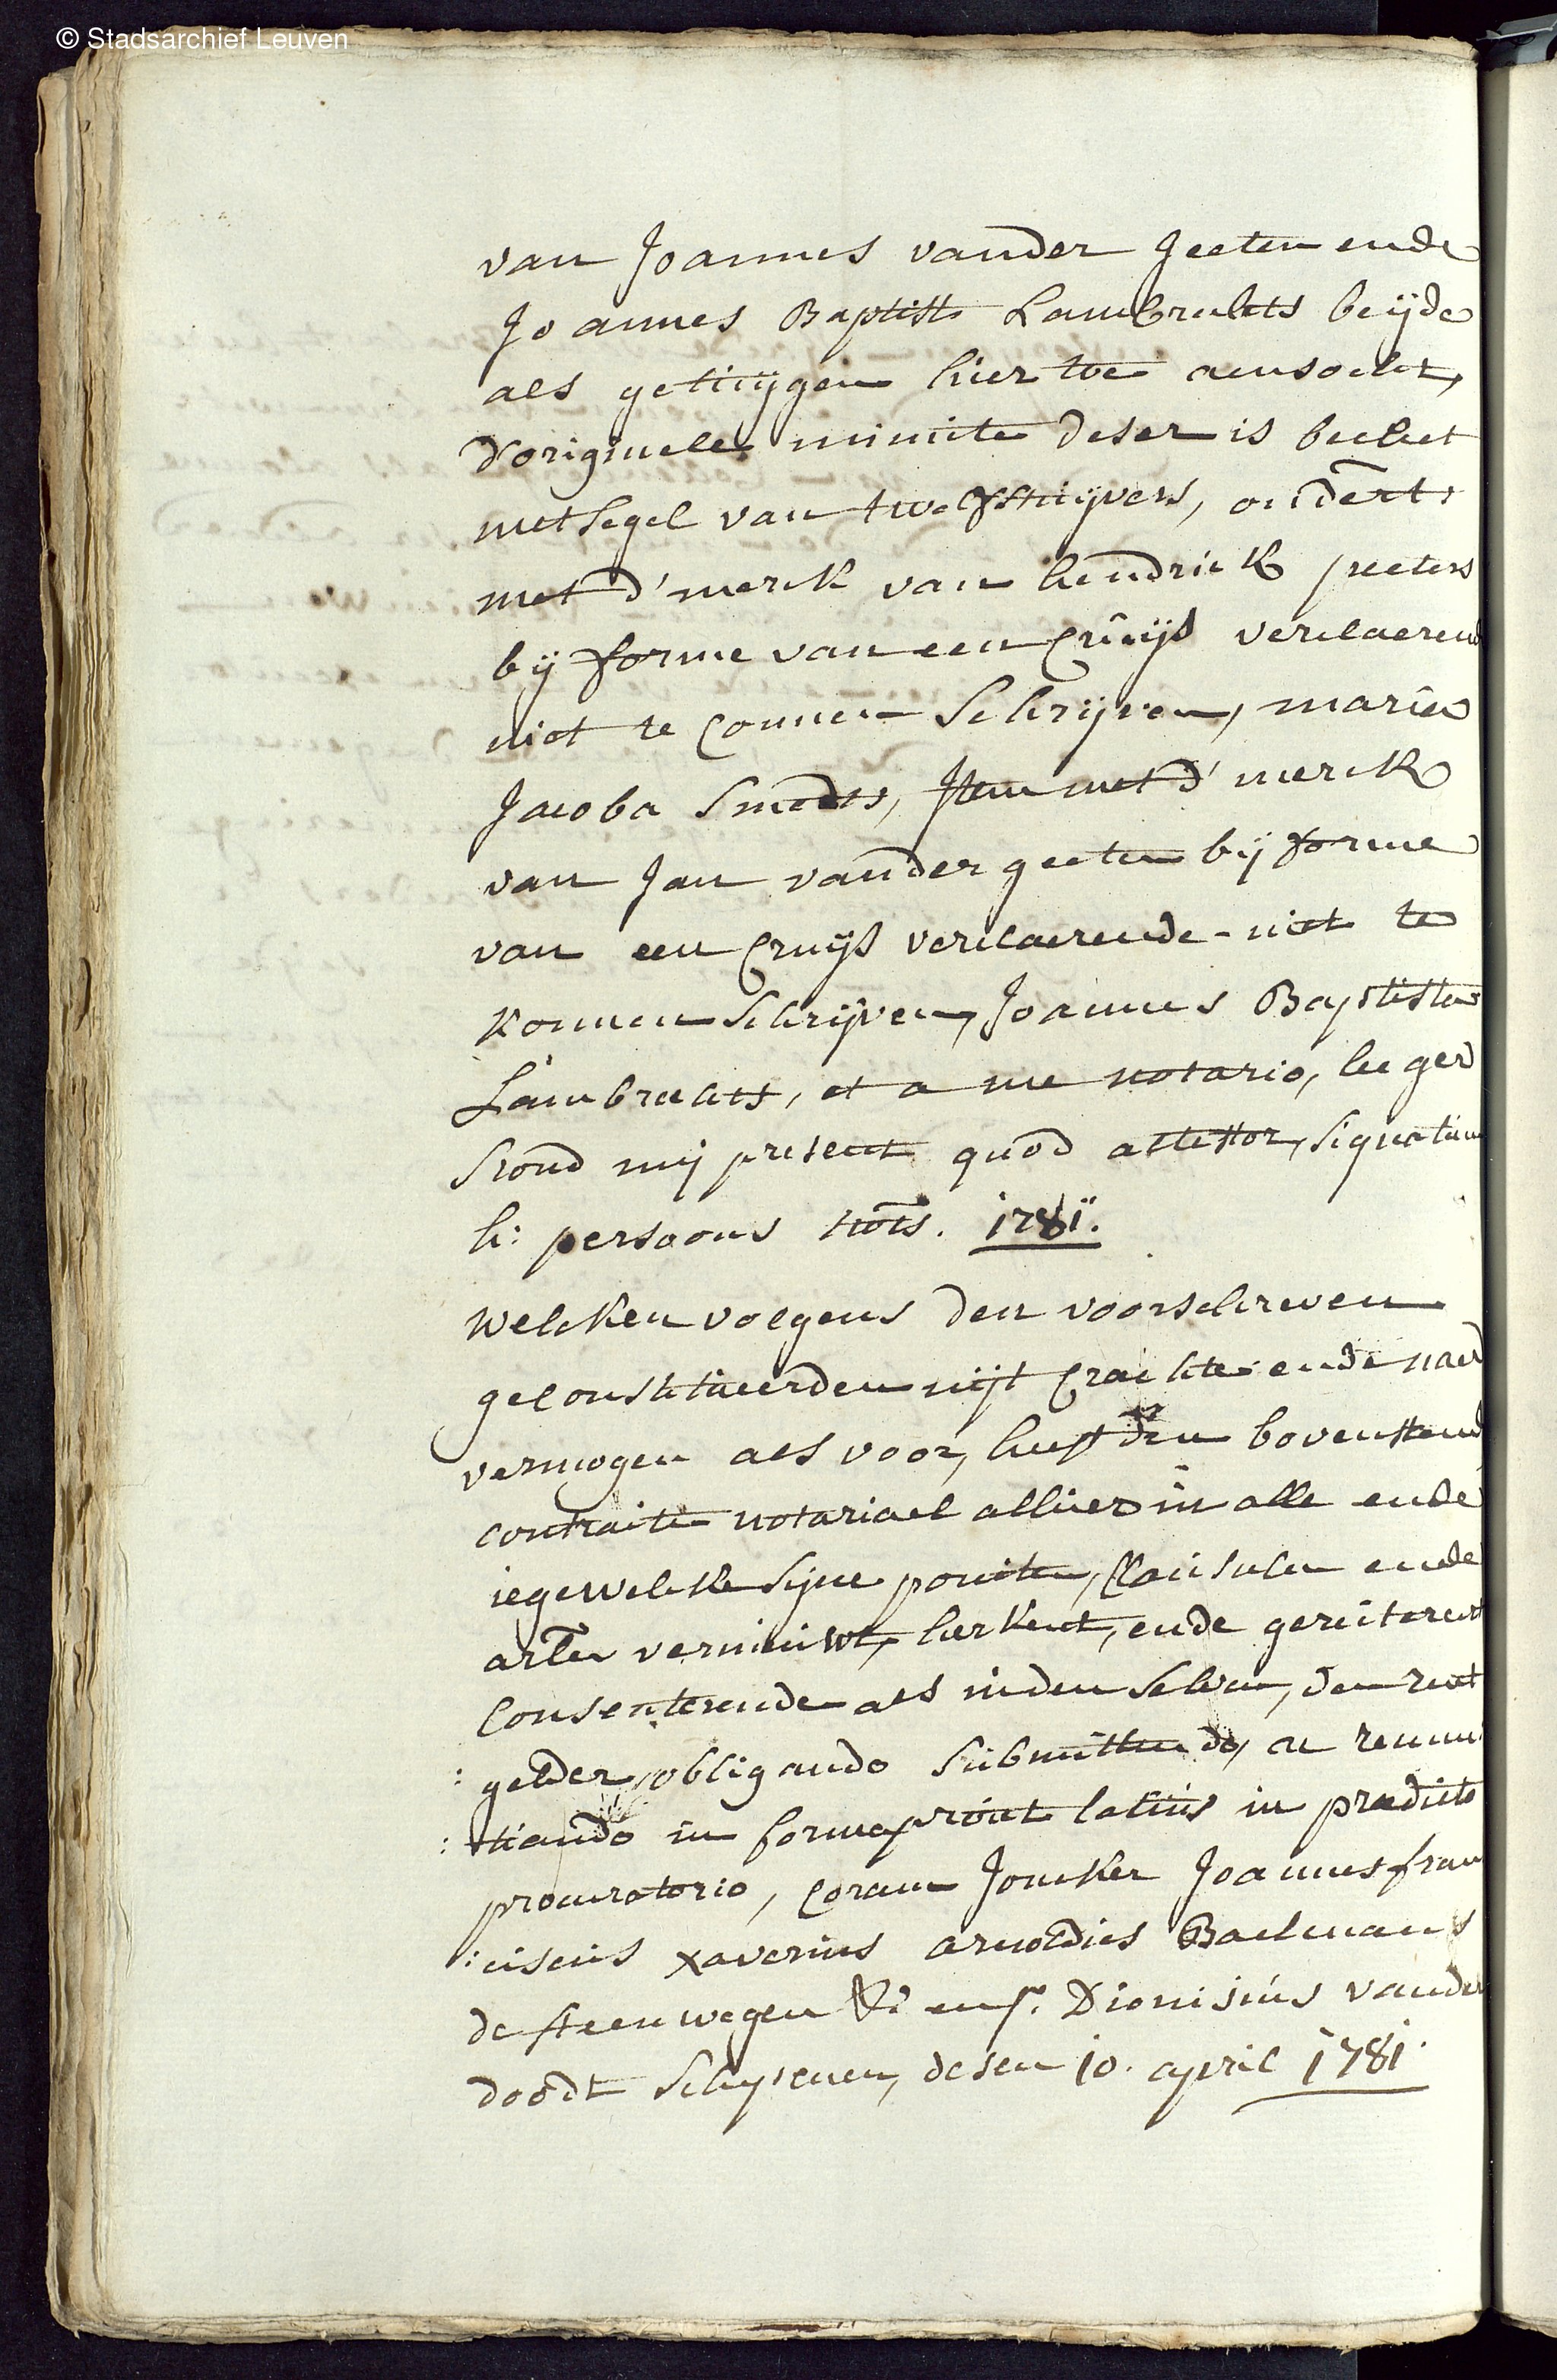 © Stadsarchief Leuven
van Joannes vander Jeeten ende
Joannes Baptista Lambrechts beijde
als getuijgen hier toe aensocht,
d'originele minute deser is becleet
met segel van twelf stuijvers, ondert:
met d'merck van hendrick peeters
bij forme van een Cruijs verclaerend
niet te Connen Schrijven, marie
Jacoba Smedts, Item met d'merck
van Jan vander geeten bij forme
van een Cruijs verclaerende niet te
Konnen Schrijven, Joannes Baptista
Lambrechts, et a me notario, leeger
Stond mij present quod attestor, signatum
h: persoons nots. 1781.
Welcken volgens den voorschreven
geconstitueerden uijt Crachte ende naer
vermogen als voor, heeft den bovenstaend
contracte notariael alhier in alle ende
iegewelcke sijne poincten, Clausulen ende
arlen vernieuwt, herkent, ende gereitereert
Consenterende als in den selven, den rent
: gelder, obligando submittendo, ac renun
: tiando in forma prout latius in predicto
procuratorio, Coram Joncker Joannes fran
: ciscus xaverius arnoldus Baelmans
de steenwegen &a en sr. Dionisius vander
doodt Schepenen, desen 10. april 1781.